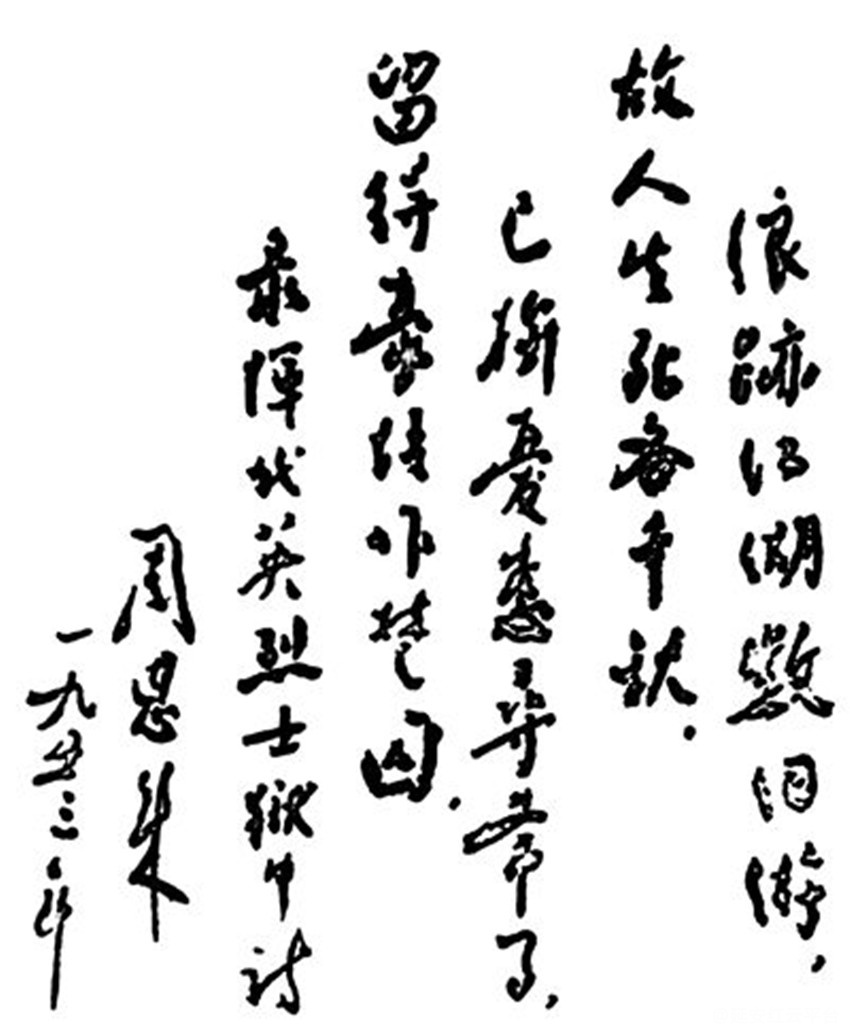 浪跡江湖憶旧游，
故人生死各千秋．
已擯憂患尋常事，
留得豪情作楚囚．
录惲代英烈士獄中詩
周恩来
一九五三年